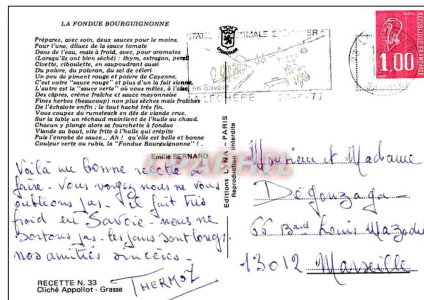 LA FONDUE BOURGUIGNONNE
Prépares, avec soin, deux sauces pour le moins.
Pour l'une, dilues de la sauce tomate
Dans de l'eau, mais à froid, avec, pour aromates
(Lorsqu'ils ont bien séché) : thym, estragon, persil
Cisette, ciboulette, en saupoudrant aussi
Du poivre, du poivron, du sel de céleri
Un peu de piment rouge et poivre de Cayenne.
C'est votre "sauce rouge" et plus d'un la fait sienne.
L'autre est la "sauce verte" où vous mêles, à l'aise
Des câpres, crème fraîche et sauce mayonnaise
Fines herbes (beaucoup) non plus sèches mais fraîches
De l'échalote enfin : le tout haché très fin.
Vous coupes du rumsteack en dés de viande crue.
Sur la table un réchaud maintient de l'huile au chaud.
Chacun y plonge alors sa fourchette à fondue
Viande au bout, vite frite à l'huile qui crépite
Puis l'enrobe de sauce... Ah ! qu'elle est belle et bonne
Couleur verte ou rubis, la "Fondue Bourguignonne" !
Emile BERNARD
Voilà une bonne recette à
faire. Vous voyez nous ne vous
oublions pas. Il fait très
froid en Savoie. nous ne
sortons pas. les jours sont longs
nos amitiés sincères.
THERMOZ
RECETTE N. 33
Cliché Appollot - Grasse
Editions LYNA - PARIS
Reproduction interdite
THERMALE
en Savoie
1,00
Monsieur et Madame
Degonzaga
66 Bard Louis Mazode
13012 Marseille